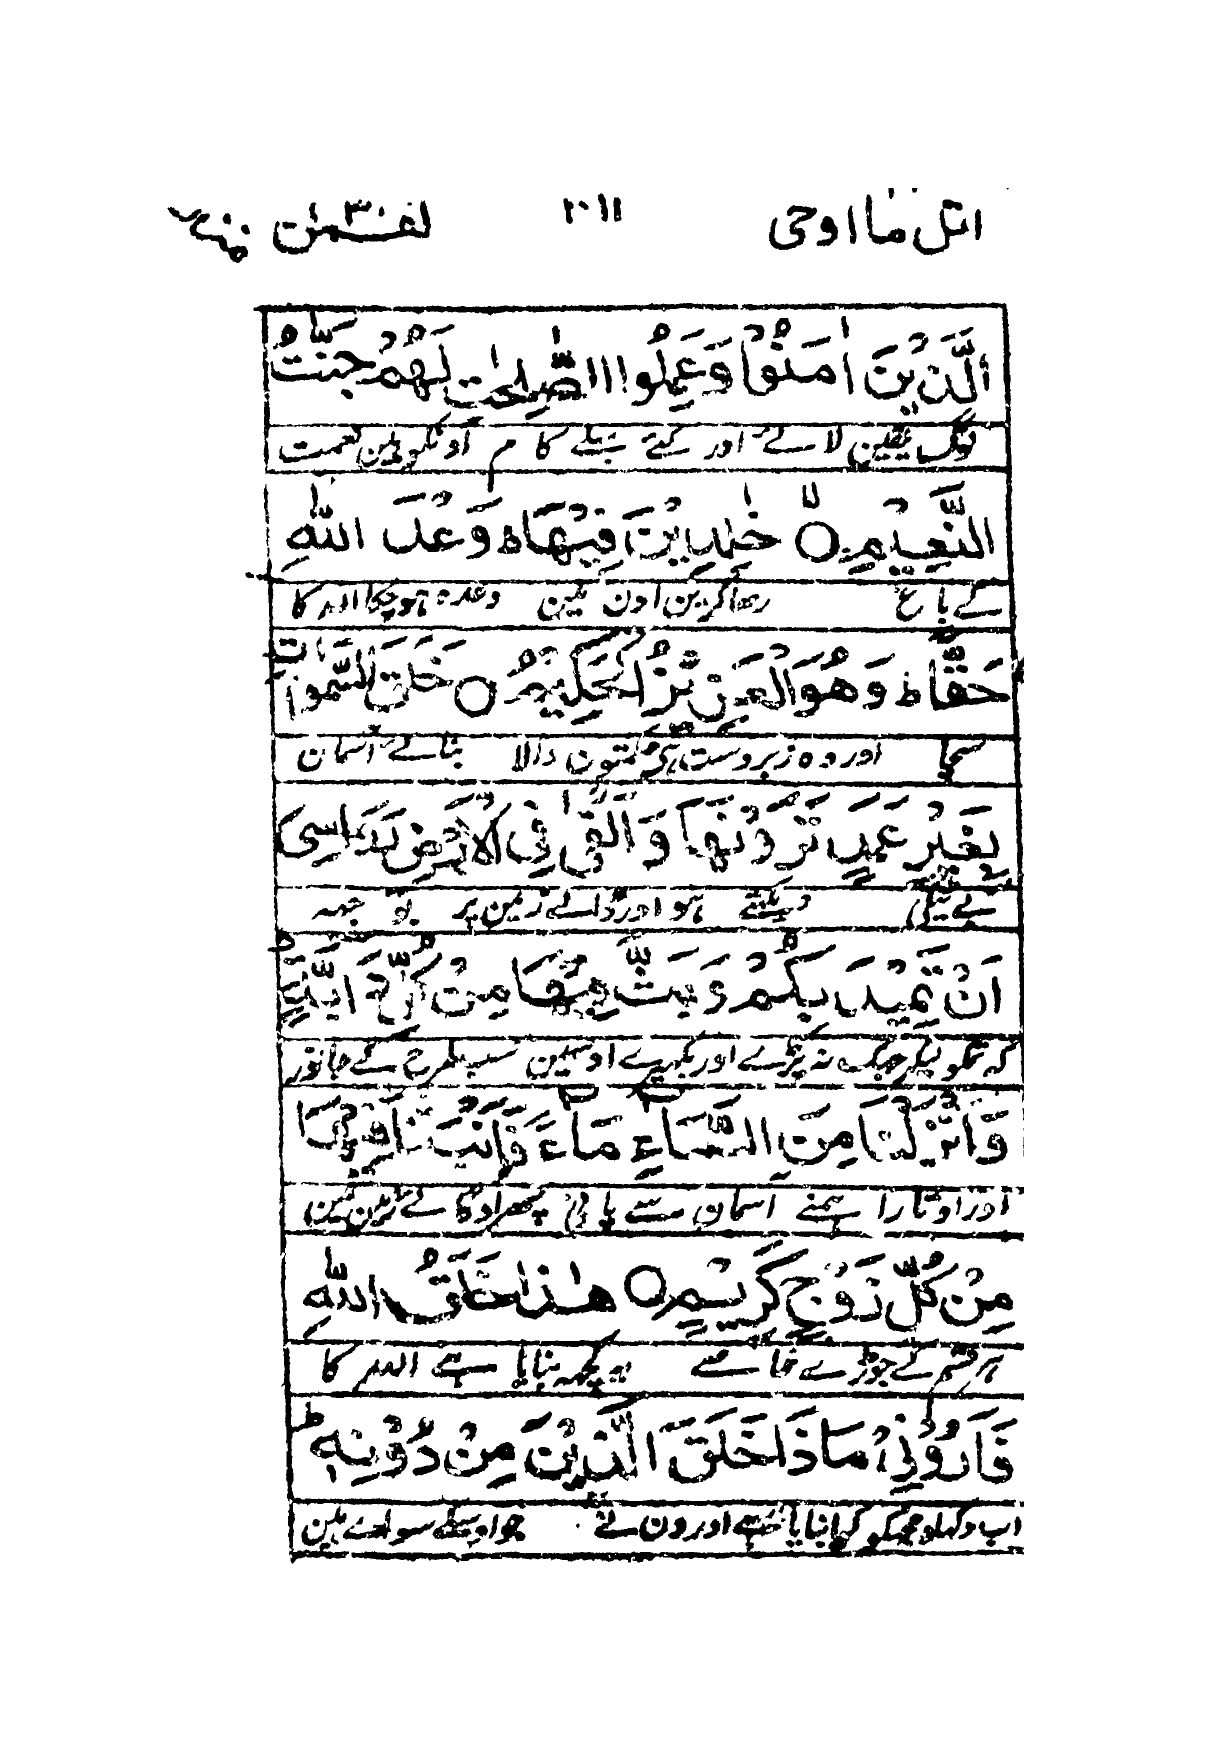 اتل ما اوحی ۲۰۱۱ لقمٰن ۳۱
اَلَّذِيْنَ اٰمَنُوْا وَعَمِلُوا الصّٰلِحٰتِ لَهُمْ جَنّٰتُ
لوگ یقین لائے اور کئے بھلے کام اونکو ہین نعمت
النَّعِيْمِ ۝ خٰلِدِيْنَ فِيْهَا ؕ وَعْدَ اللّٰهِ
کے باغ رہا کرین اون مین وعدہ ہوچکا اللہ کا
حَقًّا ؕ وَهُوَ الْعَزِيْزُ الْحَكِيْمُ ۝ خَلَقَ السَّمٰوٰتِ
سچا اور وہ زبردست ہی حکمتون والا بنائے آسمان
بِغَيْرِ عَمَدٍ تَرَوْنَهَا وَاَلْقٰى فِى الْاَرْضِ رَوَاسِىَ
بے ٹیکی دیکھتے ہو اور ڈالے زمین پر بوجھہ
اَنْ تَمِيْدَ بِكُمْ وَبَثَّ فِيْهَا مِنْ كُلِّ دَآبَّةٍ ؕ
کہ تمکو لیکر جھک نہ پڑے اور بکھیرے اوسمین سب طرح کے جانور
وَاَنْزَلْنَا مِنَ السَّمَآءِ مَآءً فَاَنْۢبَتْنَا فِيْهَا
اور اوتارا ہمنے آسمان سے پانی پھر اوگائے زمین مین
مِنْ كُلِّ زَوْجٍ كَرِيْمٍ ۝ هٰذَا خَلْقُ اللّٰهِ
ہر قسم کے جوڑے خاصے یہ کچھہ بنایا ہے اللہ کا
فَاَرُوْنِىْ مَاذَا خَلَقَ الَّذِيْنَ مِنْ دُوْنِهٖ ؕ
اب دکھلاو مجھکو کیا بنایا ہے اورون نے جو اوسکے سوائے ہین